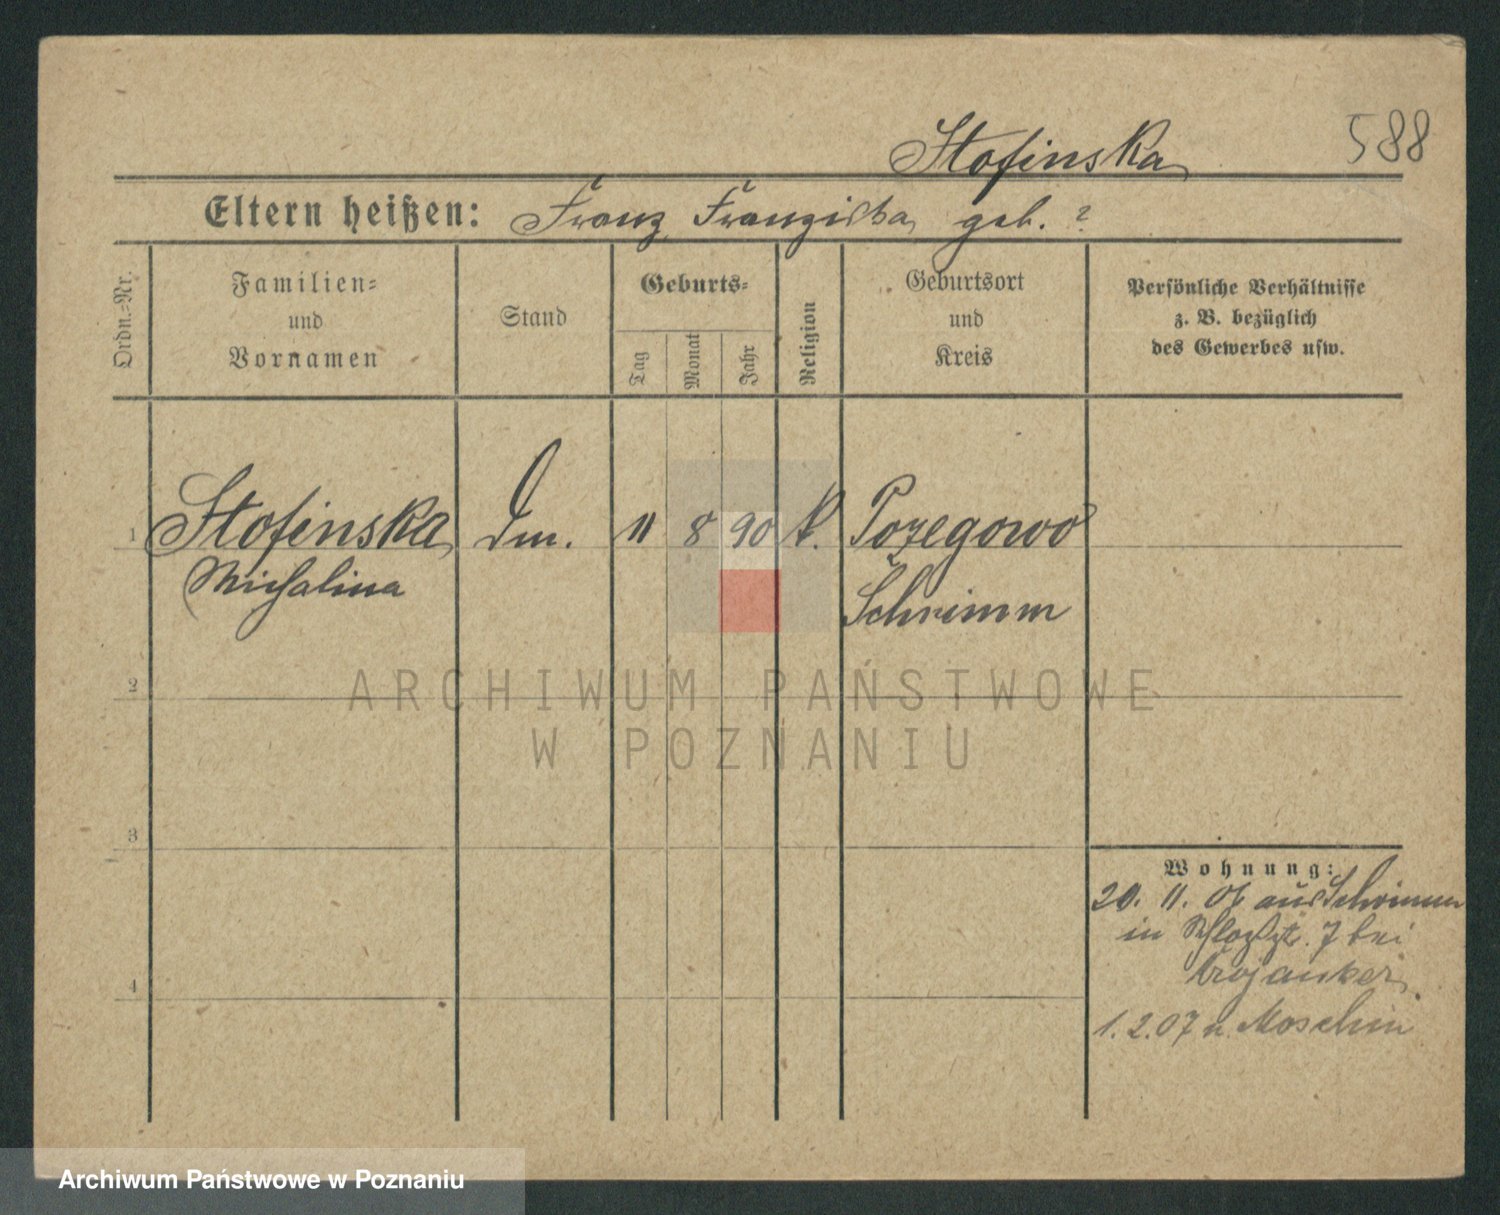 588
Stofinska
Eltern heißen: Franz, Franziska geb. ?
Ordn.-Nr.
Familien-
und
Vornamen
Stand
Geburts-
Tag
Monat
Jahr
Religion
Geburtsort
und
Kreis
Persönliche Verhältnisse
z. B. bezüglich
des Gewerbes usw.
1 Stofinska Dm. 11 8 90 k. Pozegowo
Michalina Schrimm
2
3
4
Wohnung:
20. 11. 06 aus Schrimm
in 7 bei
1.2.07 n. Moschin
ARCHIWUM PAŃSTWOWE
W POZNANIU
Archiwum Państwowe w Poznaniu